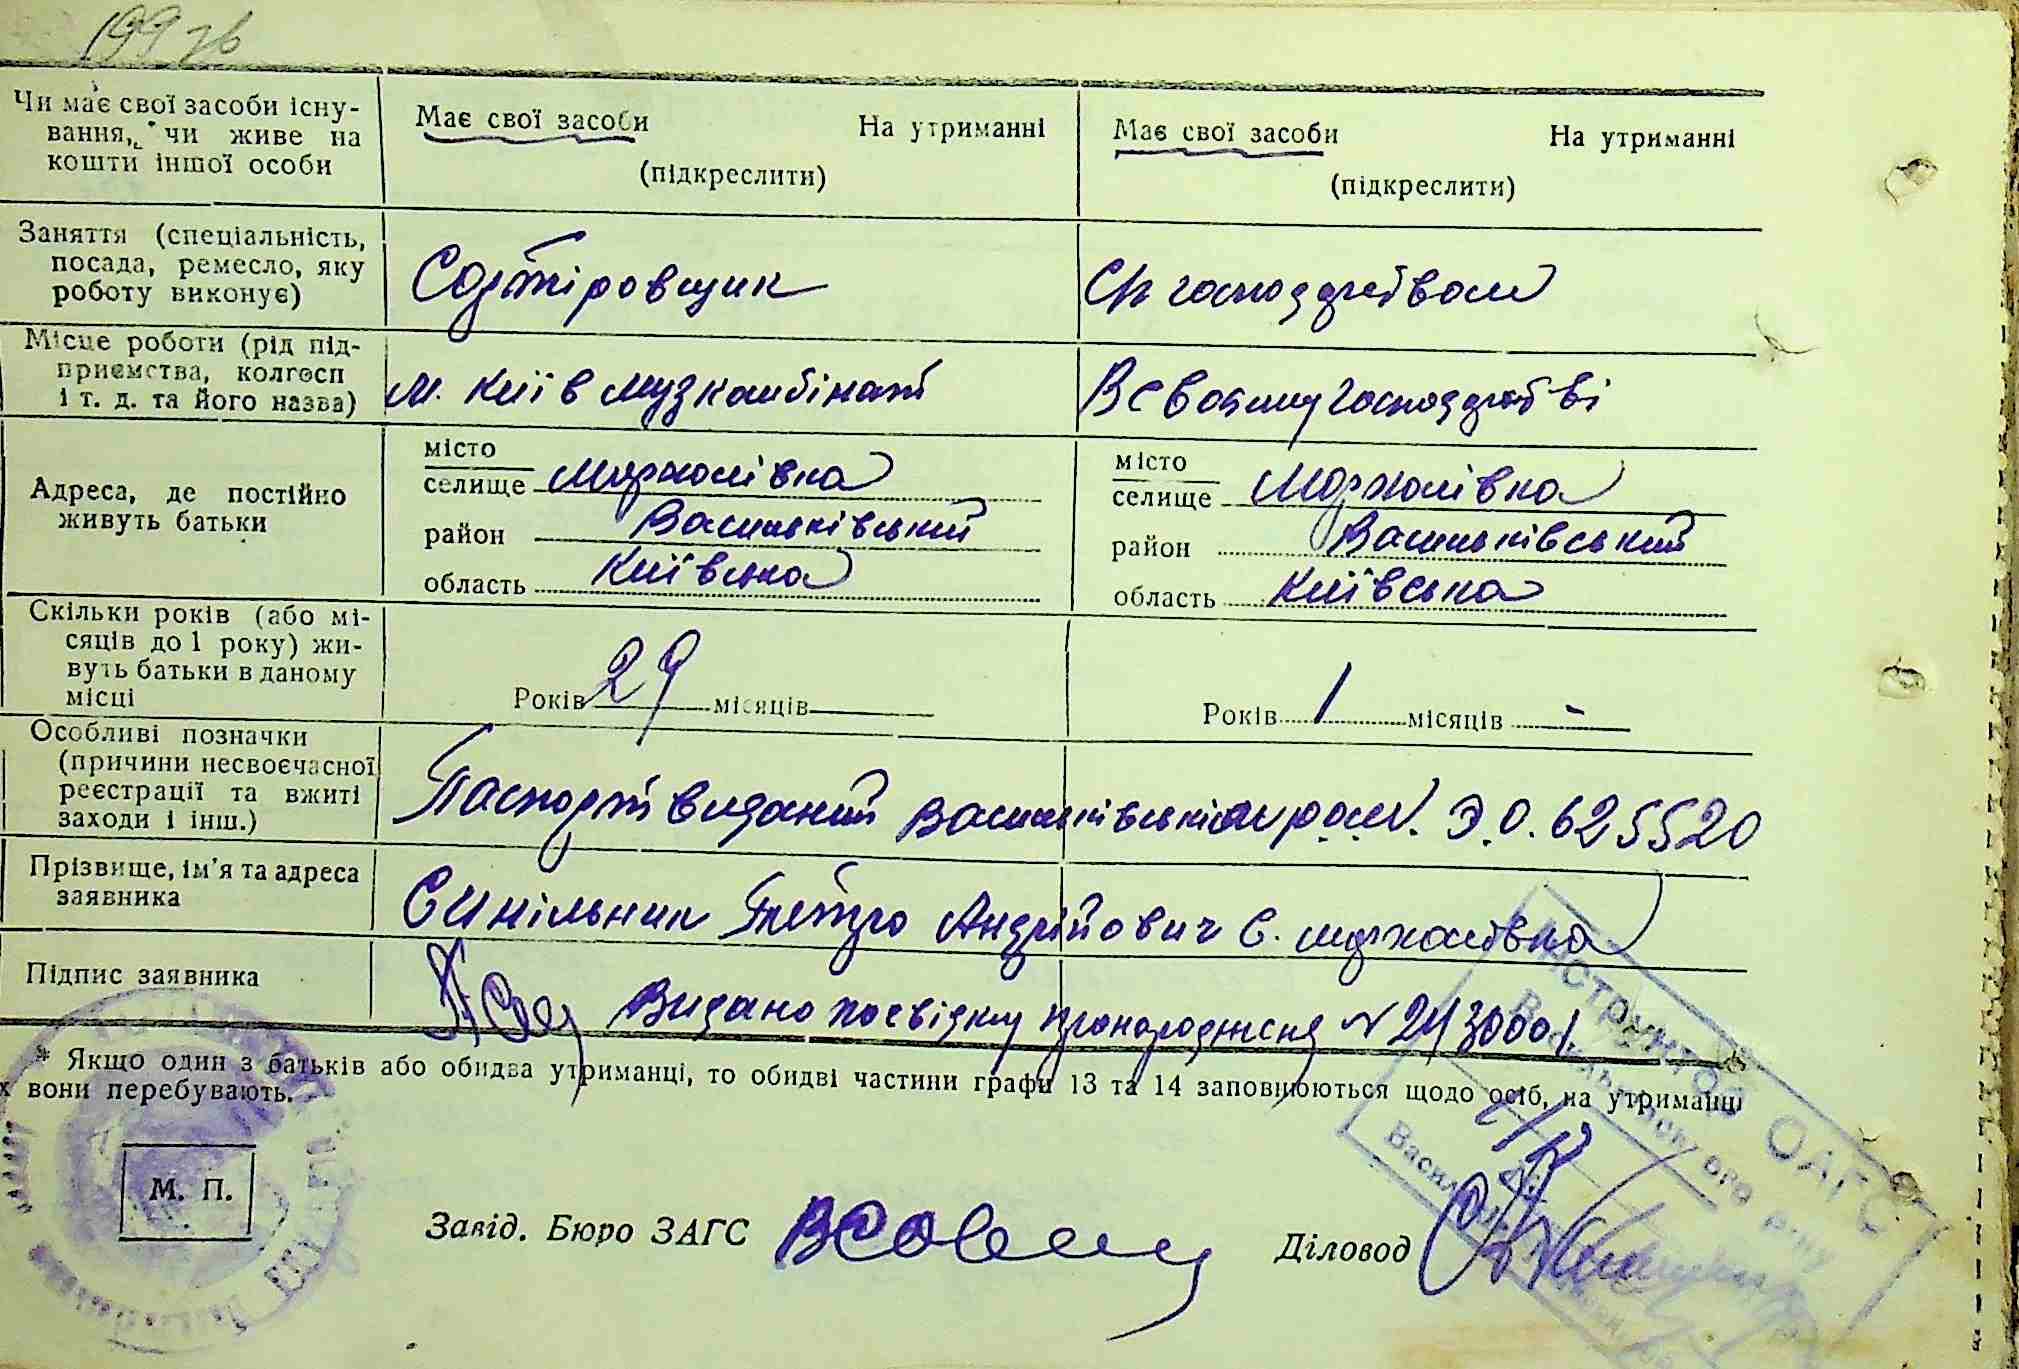 199 зв
Чи має свої засоби існу-
вання, чи живе на
кошти іншої особи
Має свої засоби На утриманні
(підкреслити)
Має свої засоби На утриманні
(підкреслити)
Заняття (спеціальність,
посада, ремесло, яку
роботу виконує)
Сортіровщик
С/г господарством
Місце роботи (рід під-
приємства, колгосп
і т. д. та його назва)
м. Київ музкомбінат
В своєму господарстві
Адреса, де постійно
живуть батьки
місто
селище Мархалівка
район Васильківський
область Київська
місто
селище Мархалівка
район Васильківський
область Київська
Скільки років (або мі-
сяців до 1 року) жи-
вуть батьки в даному
місці
Років 29 місяців
Років 1 місяців -
Особливі позначки
(причини несвоєчасної
реєстрації та вжиті
заходи і інш.)
Паспорт виданий Васильківським Э.О. 625520
Прізвище, ім'я та адреса
заявника
Синільник Петро Андрійович с. Мархалівка
Підпис заявника
Видано посвідку про народження № 243000
* Якщо один з батьків або обидва утриманці, то обидві частини графи 13 та 14 заповнюються щодо осіб, на утриманці
х вони перебувають.
М. П.
Завід. Бюро ЗАГС
Діловод
ІНСТРУКТОР ОАГС
Васильківського р-ну